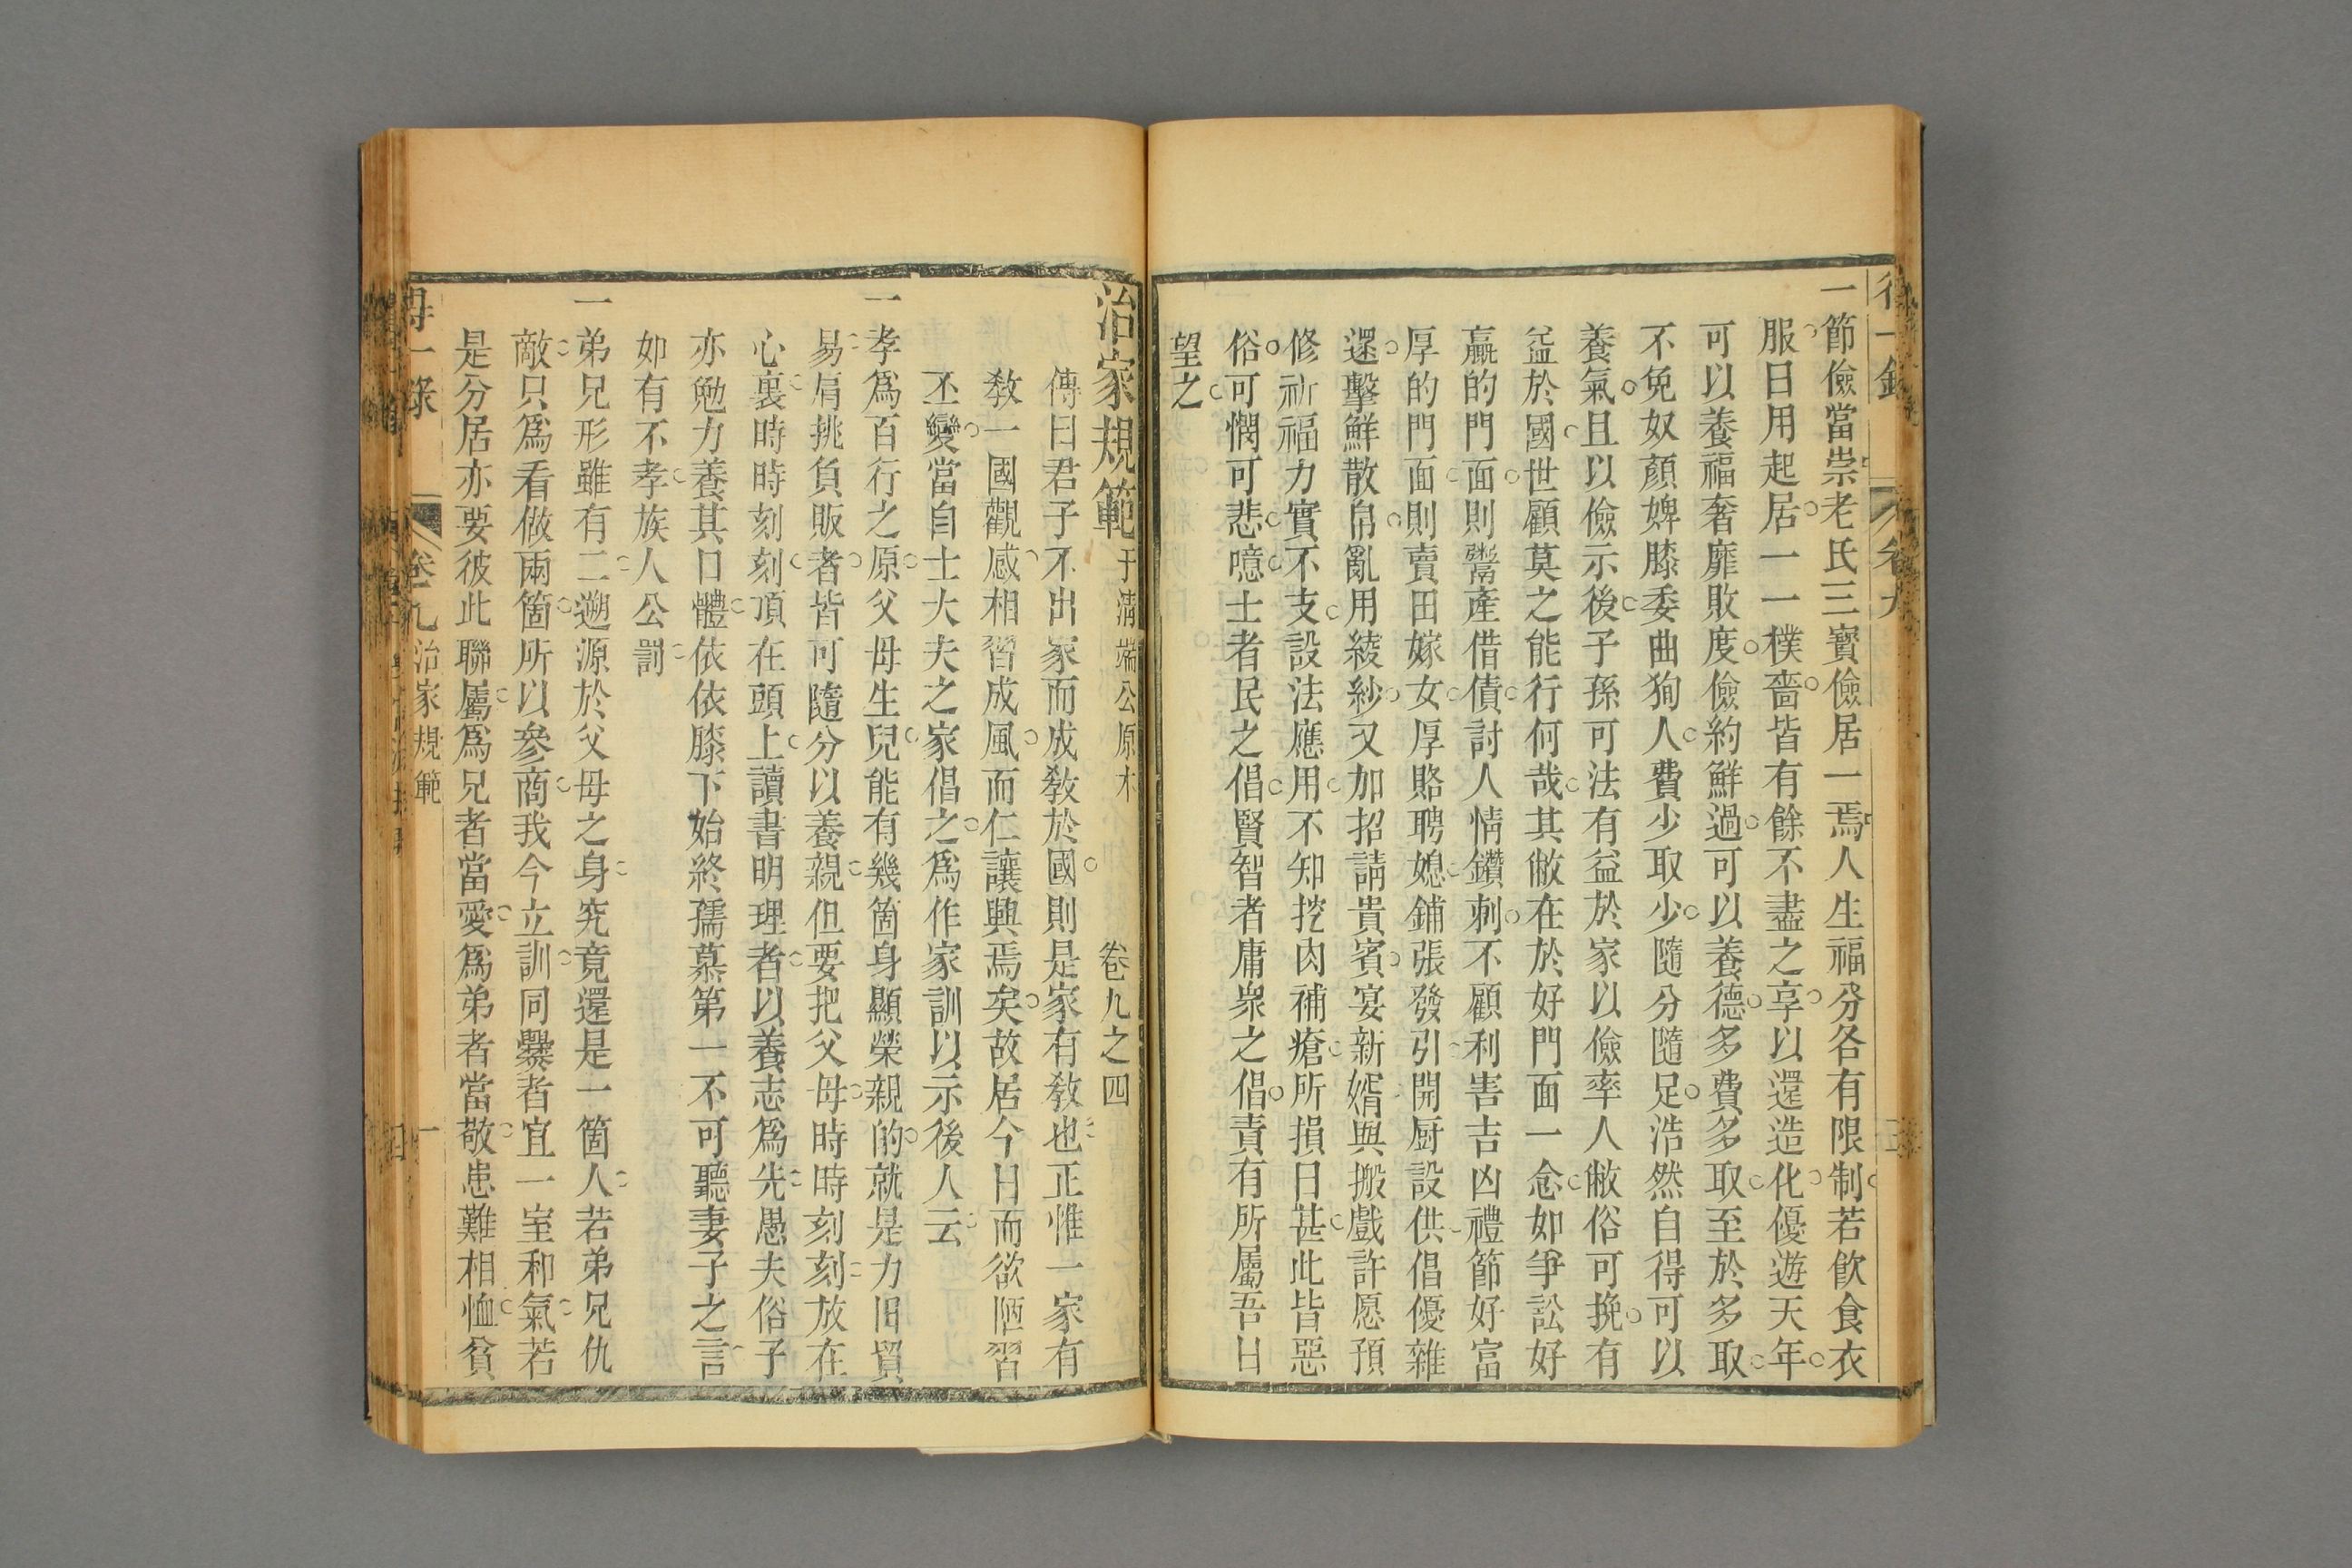 一節儉當崇老氏三寶儉居一焉人生福分各有限制若飮食衣
服日用起居一一樸嗇皆有餘不盡之享以還造化優遊天年
可以養福奢靡敗度儉約鮮過可以養德多費多取至於多取
不免奴顏婢膝委曲狥人費少取少隨分隨足浩然自得可以
養氣且以儉示後子孫可法有益於家以儉率人敝俗可挽有
益於國世顧莫之能行何哉其敝在於好門面一念如爭訟好
贏的門面則鬻產借債討人情鑽刺不顧利害吉凶禮節好富
厚的門面則賣田嫁女厚賂聘媳鋪張發引開厨設供倡優雜
還擊鮮散帛亂用綾紗又加招請貴賓宴新婿與搬戲許愿預
修祈福力實不支設法應用不知挖肉補瘡所損日甚此皆惡
俗可憫可悲噫士者民之倡賢智者庸衆之倡責有所屬吾日
望之
治家規範 于淸端公原本 卷九之四
傳曰君子不出家而成敎於國則是家有敎也正惟一家有
敎一國觀感相習成風而仁讓興焉矣故居今日而欲陋習
丕變當自士大夫之家倡之爲作家訓以示後人云
一孝爲百行之原父母生兒能有幾箇身顯榮親的就是力田貿
易肩挑負販者皆可隨分以養親但要把父母時時刻刻放在
心裏時時刻刻頂在頭上讀書明理者以養志爲先愚夫俗子
亦勉力養其口體依依膝下始終孺慕第一不可聽妻子之言
如有不孝族人公罰
一弟兄形雖有二遡源於父母之身究竟還是一箇人若弟兄仇
敵只爲看做兩箇所以參商我今立訓同爨者宜一室和氣若
是分居亦要彼此聯屬爲兄者當愛爲弟者當敬患難相恤貧
得一錄 卷九 治家規範 一